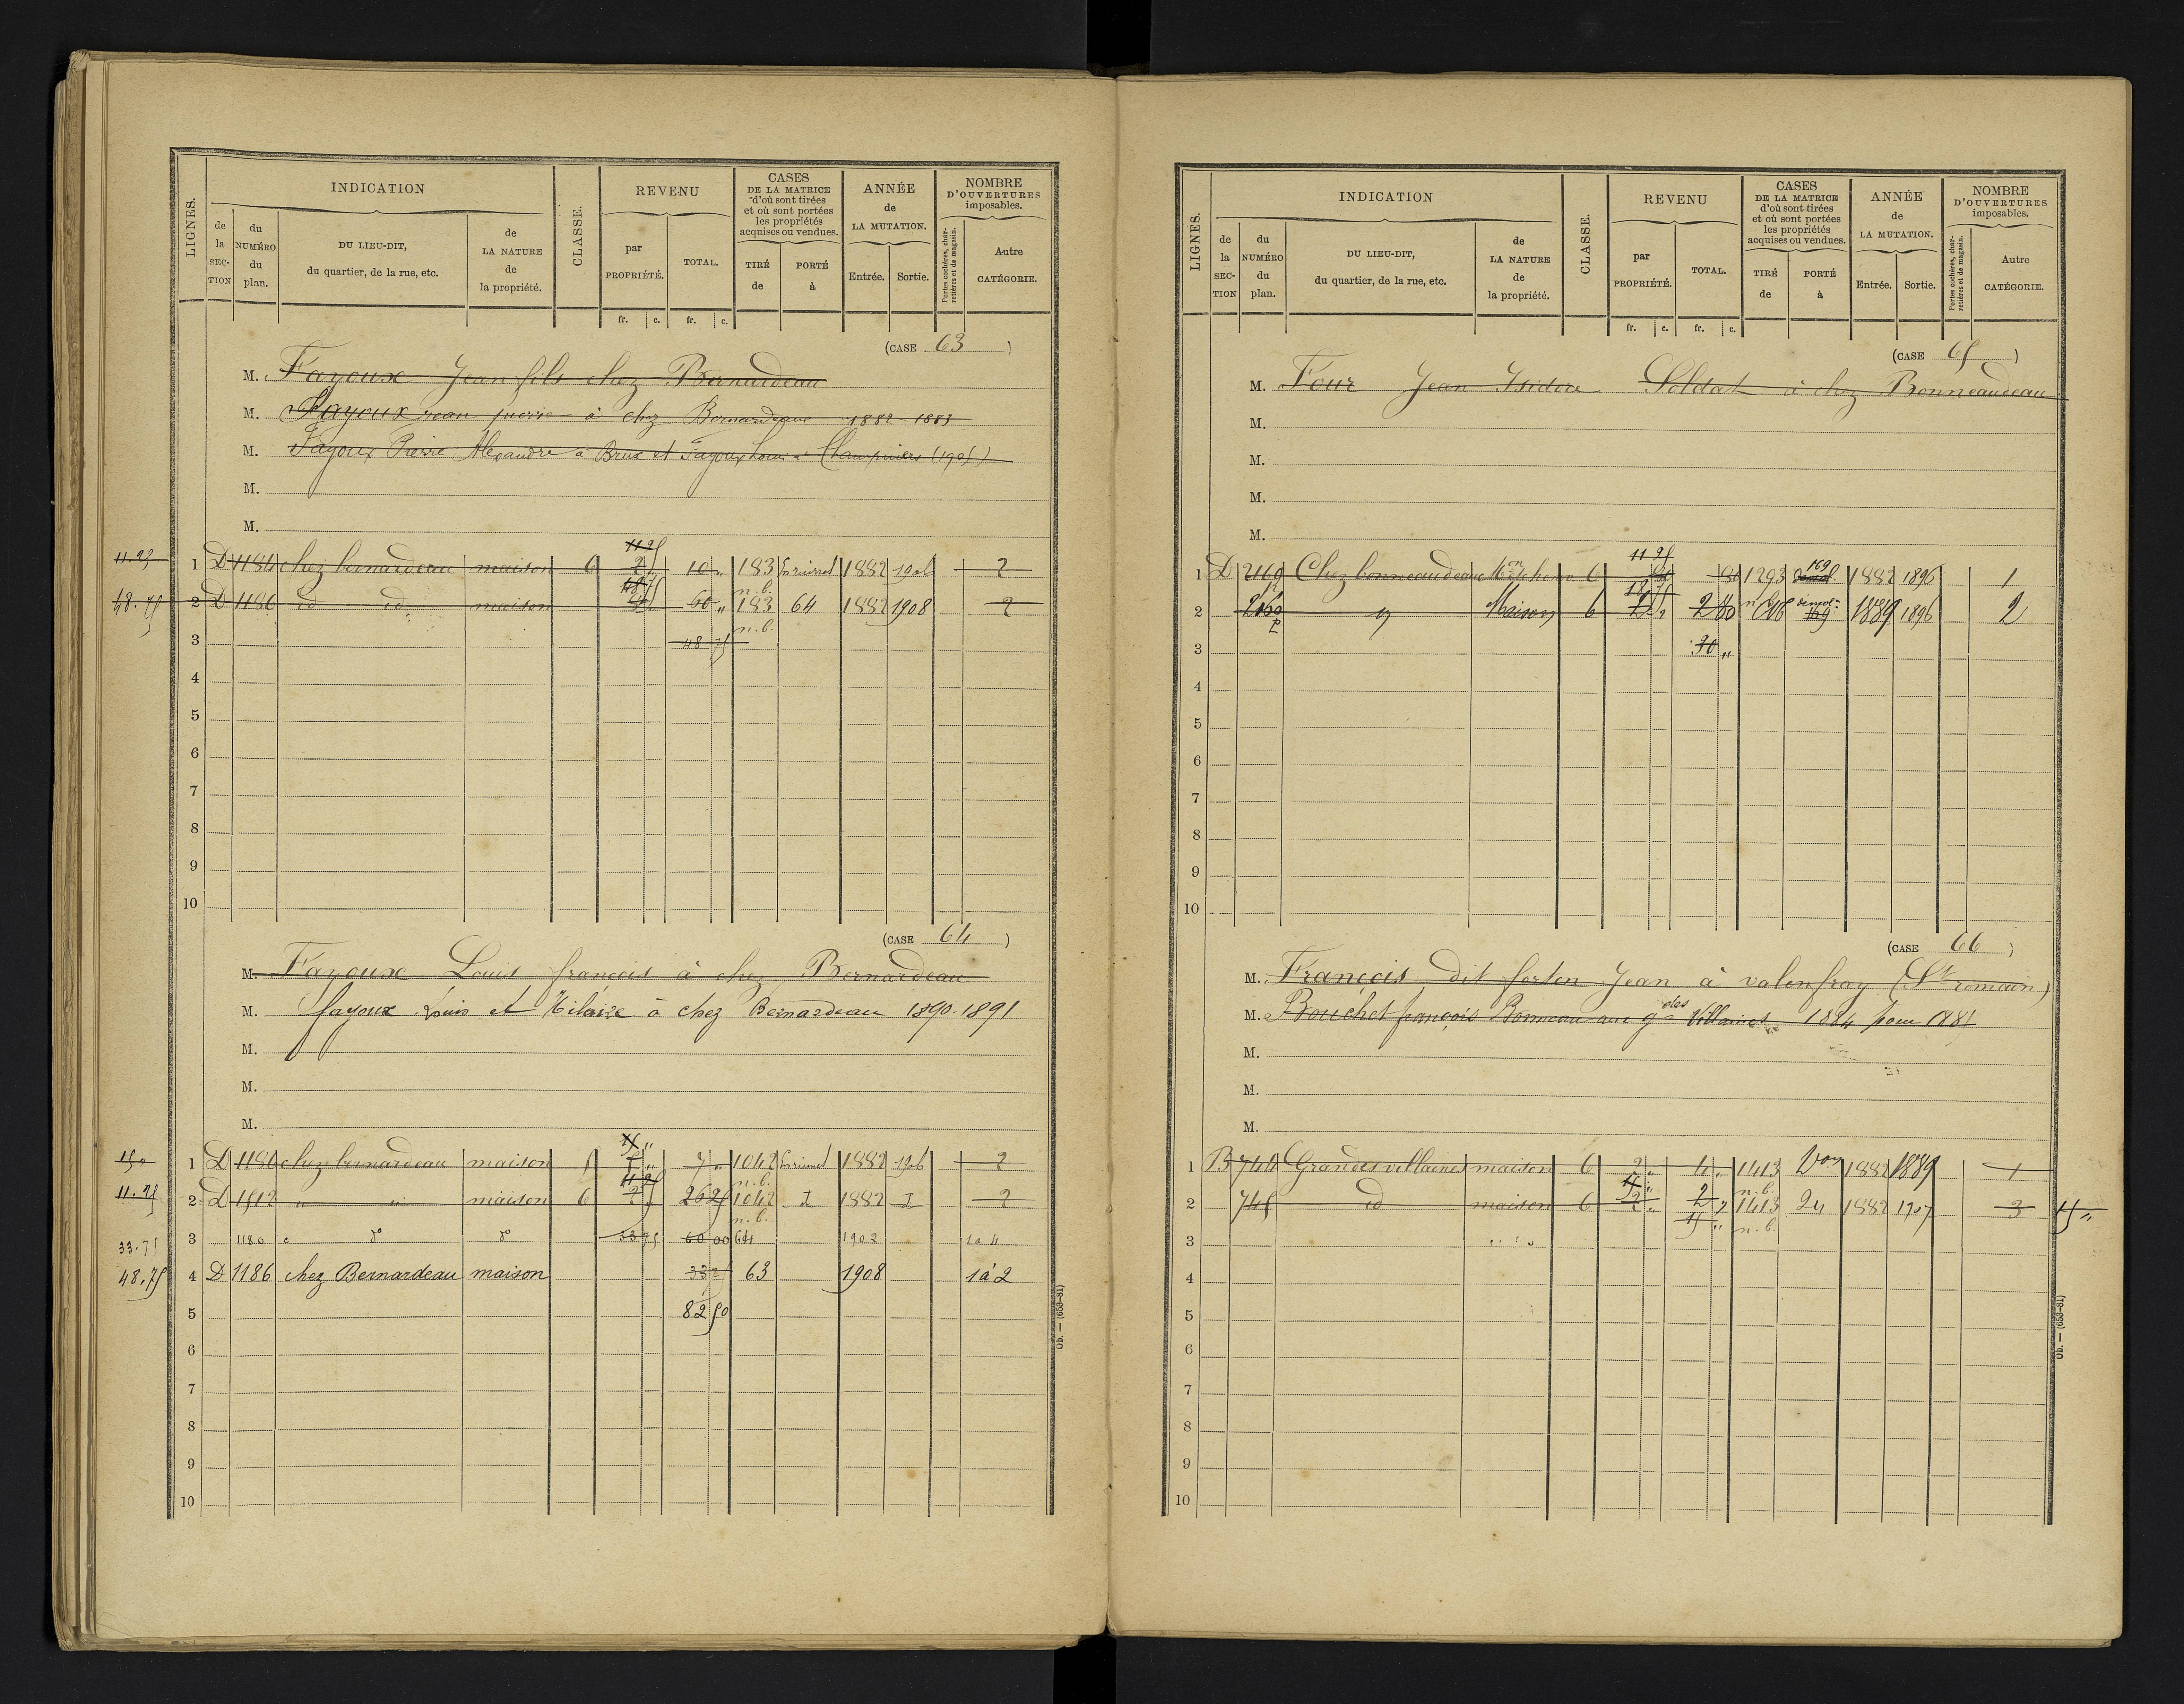 LIGNES. INDICATION CLASSE. REVENU CASES DE LA MATRICE d'où sont tirées et où sont portées les propriétés acquises ou vendues. ANNÉE de LA MUTATION. NOMBRE D'OUVERTURES imposables.
de la SECTION du NUMÉRO du plan. DU LIEU-DIT, du quartier, de la rue, etc. de LA NATURE de la propriété. par PROPRIÉTÉ. TOTAL. TIRÉ de PORTÉ à Entrée. Sortie. Portes cochères, charretières et de magasin. Autre CATÉGORIE.
fr. c. fr. c.
(CASE 63)
M. Fayoux Jean fils chez Bernardeau
M. Fayoux Jean pierre à chez Bernardeau 1882 1883
M. Fayoux Pierre Alexandre à Brux et Fayoux Louis à Champniers (1905)
M.
M.
11.25
11.25 1 D 1184 chez bernardeau maison 6 2 10 " 183 En ruines 1882 1906 2
48.75 n.b.
48.75 2 D 1186 id id maison 60 " 183 64 1882 1908 2
3 48 75 n.b.
4
5
6
7
8
9
10
(CASE 64)
M. Fayoux Louis françois à chez Bernardeau
M. fayoux Louis et Hilaire à chez Bernardeau 1890.1891
M.
M.
M.
15 "
15 " 1 D 1180 chez bernardeau maison 5 7 " 1042 En ruines 1882 1906 2
11 25 n.b.
11.25 2 D 1512 " " maison 6 2 26 25 1042 I 1882 I 2
n.b.
33.75 3 1180 c do do 33 75 60 00 64 1902 1 à 4
48.75 4 D 1186 chez Bernardeau maison 33 75 63 1908 1 à 2
5 82 50
6
7
8
9
10
Ob. — (653-81)
LIGNES. INDICATION CLASSE. REVENU CASES DE LA MATRICE d'où sont tirées et où sont portées les propriétés acquises ou vendues. ANNÉE de LA MUTATION. NOMBRE D'OUVERTURES imposables.
de la SECTION du NUMÉRO du plan. DU LIEU-DIT, du quartier, de la rue, etc. de LA NATURE de la propriété. par PROPRIÉTÉ. TOTAL. TIRÉ de PORTÉ à Entrée. Sortie. Portes cochères, charretières et de magasin. Autre CATÉGORIE.
fr. c. fr. c.
(CASE 65)
M. Four Jean Isidore Soldat à chez Bonneaudeau
M.
M.
M.
M.
11 25 169
1 D 2169 Chez bonneaudeau 6 1293 1882 1896 1
18 75 n.b.
2 2160 Maison 6 2 80 1889 1896 2
3 30 "
4
5
6
7
8
9
10
(CASE 66)
M. François dit forton Jean à valenfray (St romain)
M. Bouchet françois Bonneau aux gdes Villaines 1884 pour 1885
M.
M.
M.
1 B 744 Grandes villaines maison 6 2 " 4 " 1413 1882 1889 1
n.b.
2 745 id maison 6 2 " 2 " 1413 24 1882 1907 3 15 "
3 15 " n.b.
4
5
6
7
8
9
10
Ob. — (653-81)